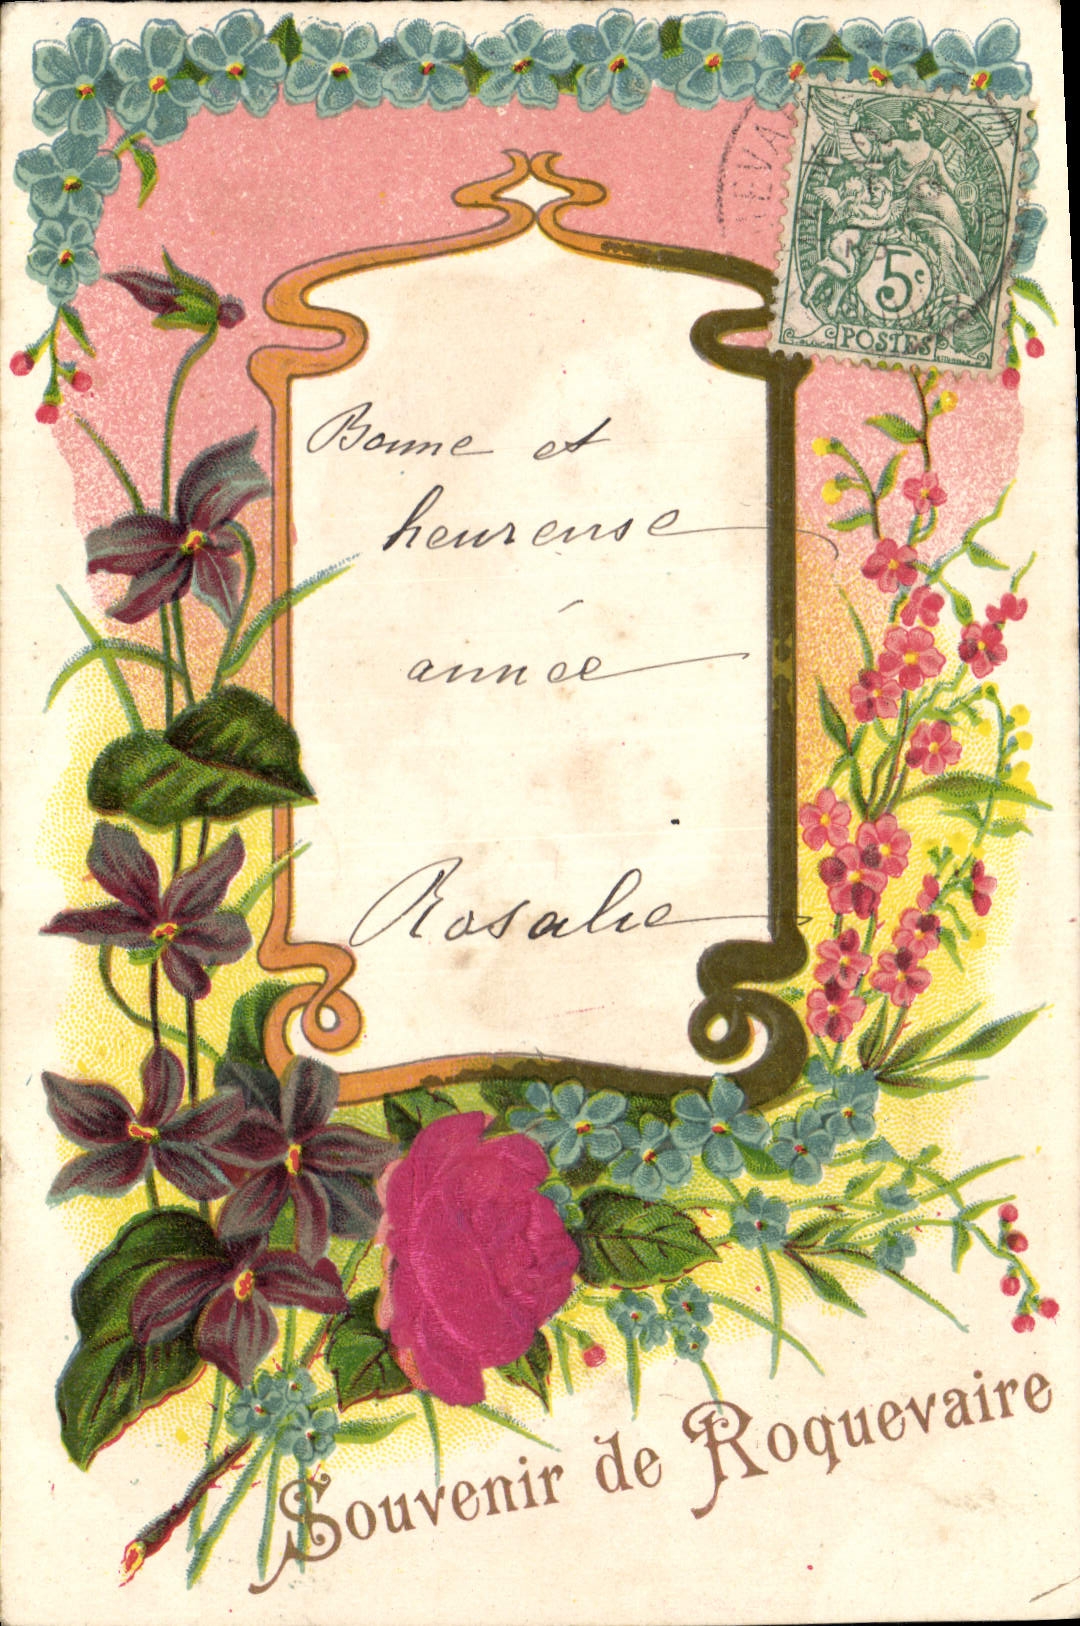 EVA
5c
POSTES
Bonne et
heureuse
année
Rosalie
Souvenir de Roquevaire